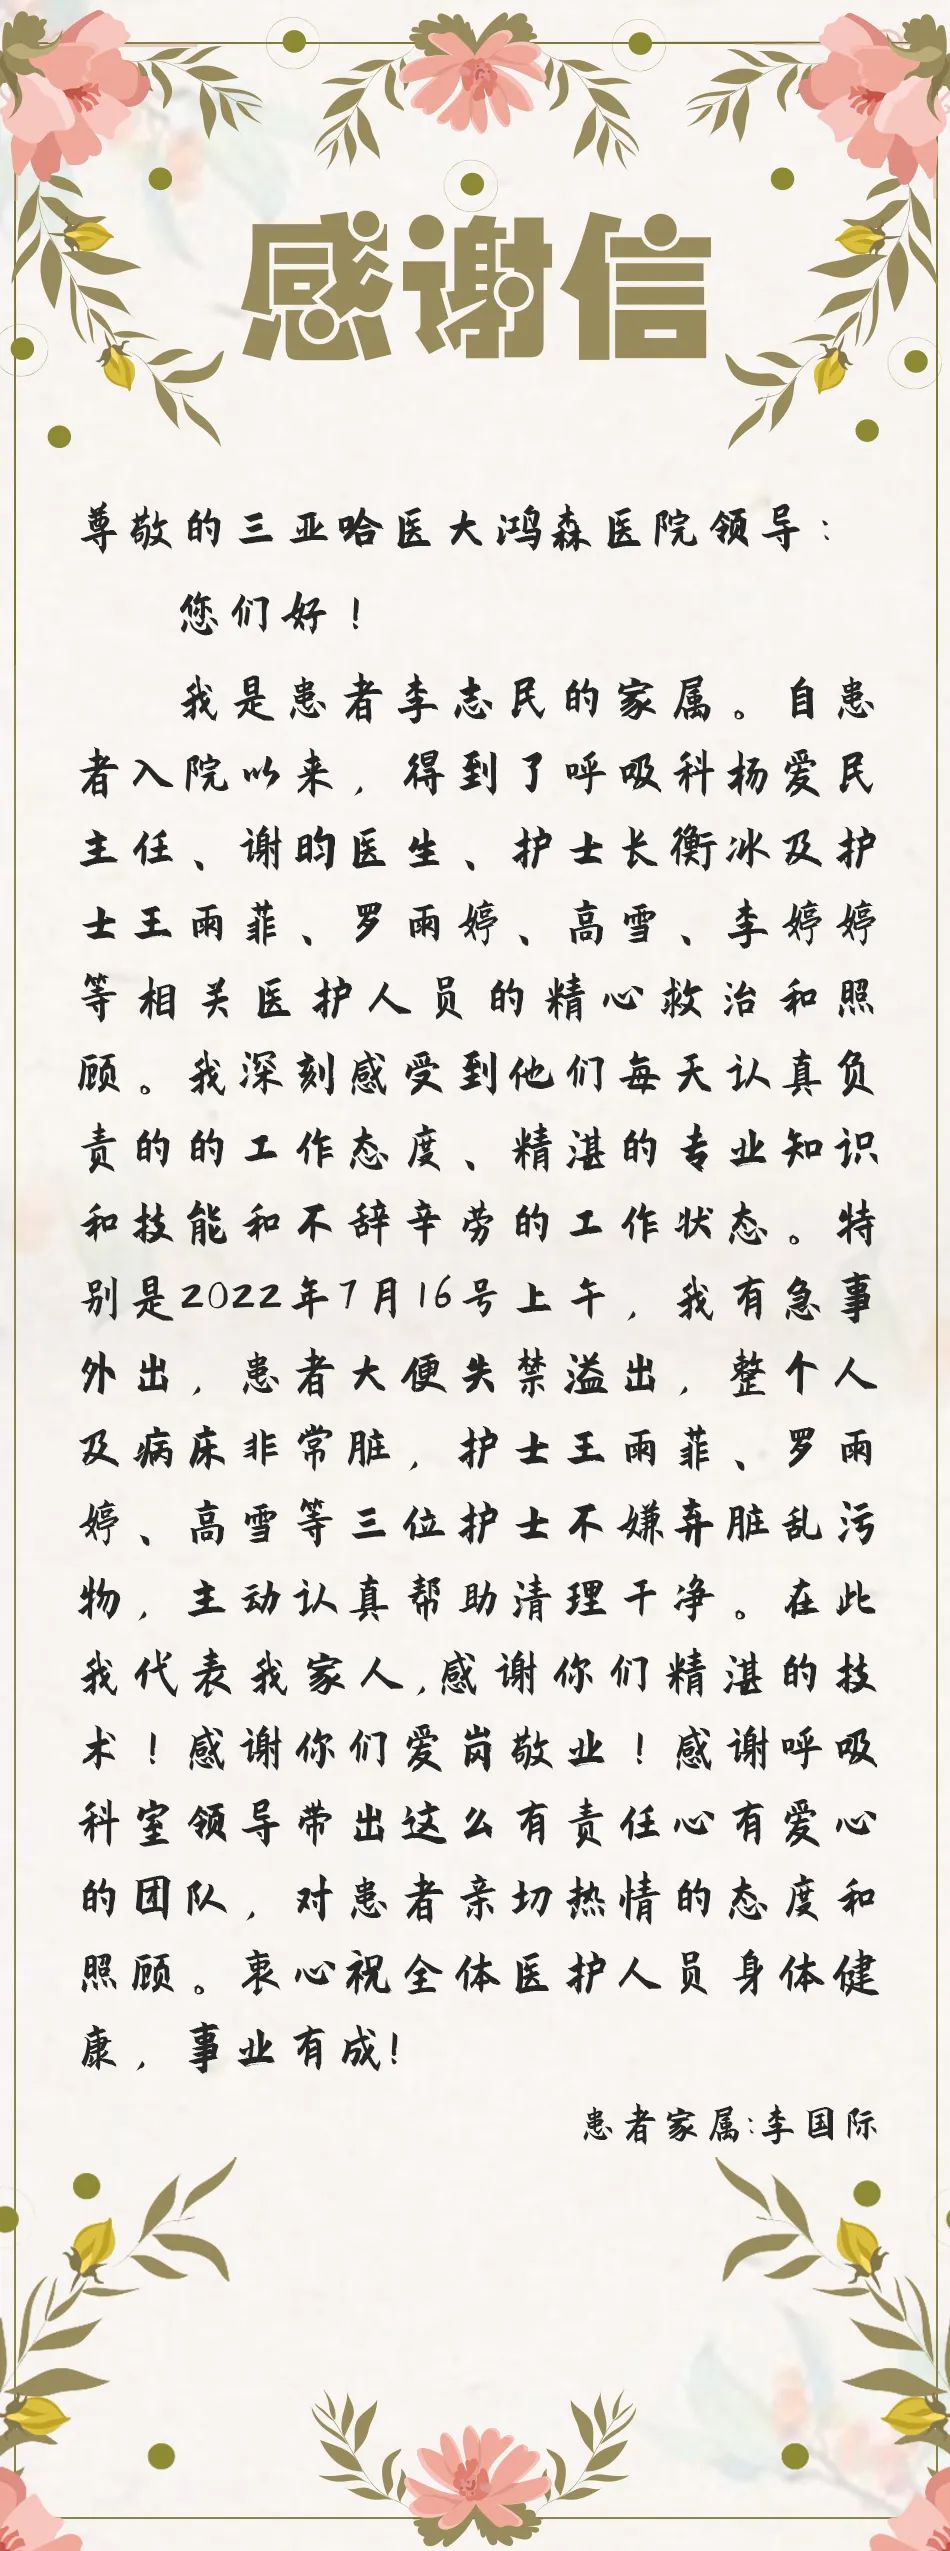 感谢信
尊敬的三亚哈医大鸿森医院领导：
您们好！
我是患者李志民的家属。自患
者入院以来，得到了呼吸科杨爱民
主任、谢昀医生、护士长衡冰及护
士王雨菲、罗雨婷、高雪、李婷婷
等相关医护人员的精心救治和照
顾。我深刻感受到他们每天认真负
责的的工作态度、精湛的专业知识
和技能和不辞辛劳的工作状态。特
别是2022年7月16号上午，我有急事
外出，患者大便失禁溢出，整个人
及病床非常脏，护士王雨菲、罗雨
婷、高雪等三位护士不嫌弃脏乱污
物，主动认真帮助清理干净。在此
我代表我家人,感谢你们精湛的技
术！感谢你们爱岗敬业！感谢呼吸
科室领导带出这么有责任心有爱心
的团队，对患者亲切热情的态度和
照顾。衷心祝全体医护人员身体健
康，事业有成!
患者家属:李国际